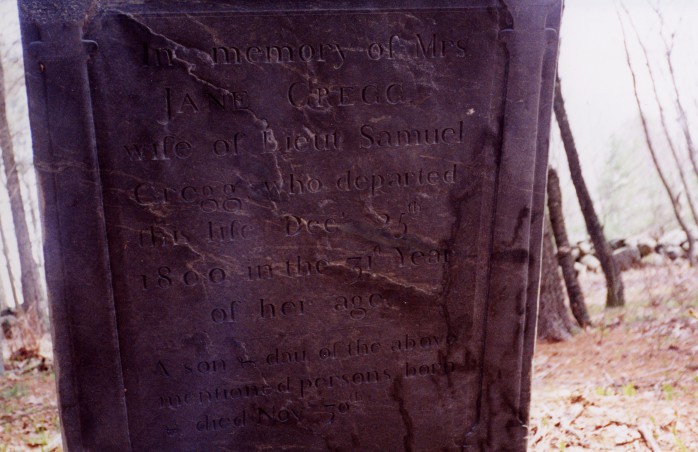 In memory of Mrs
JANE GREGG
wife of Lieut Samuel
Gregg who departed
this life Decr 25th
1800 in the 71st Year
of her age
A son & daur of the above
mentioned persons born
& died Nov 7th